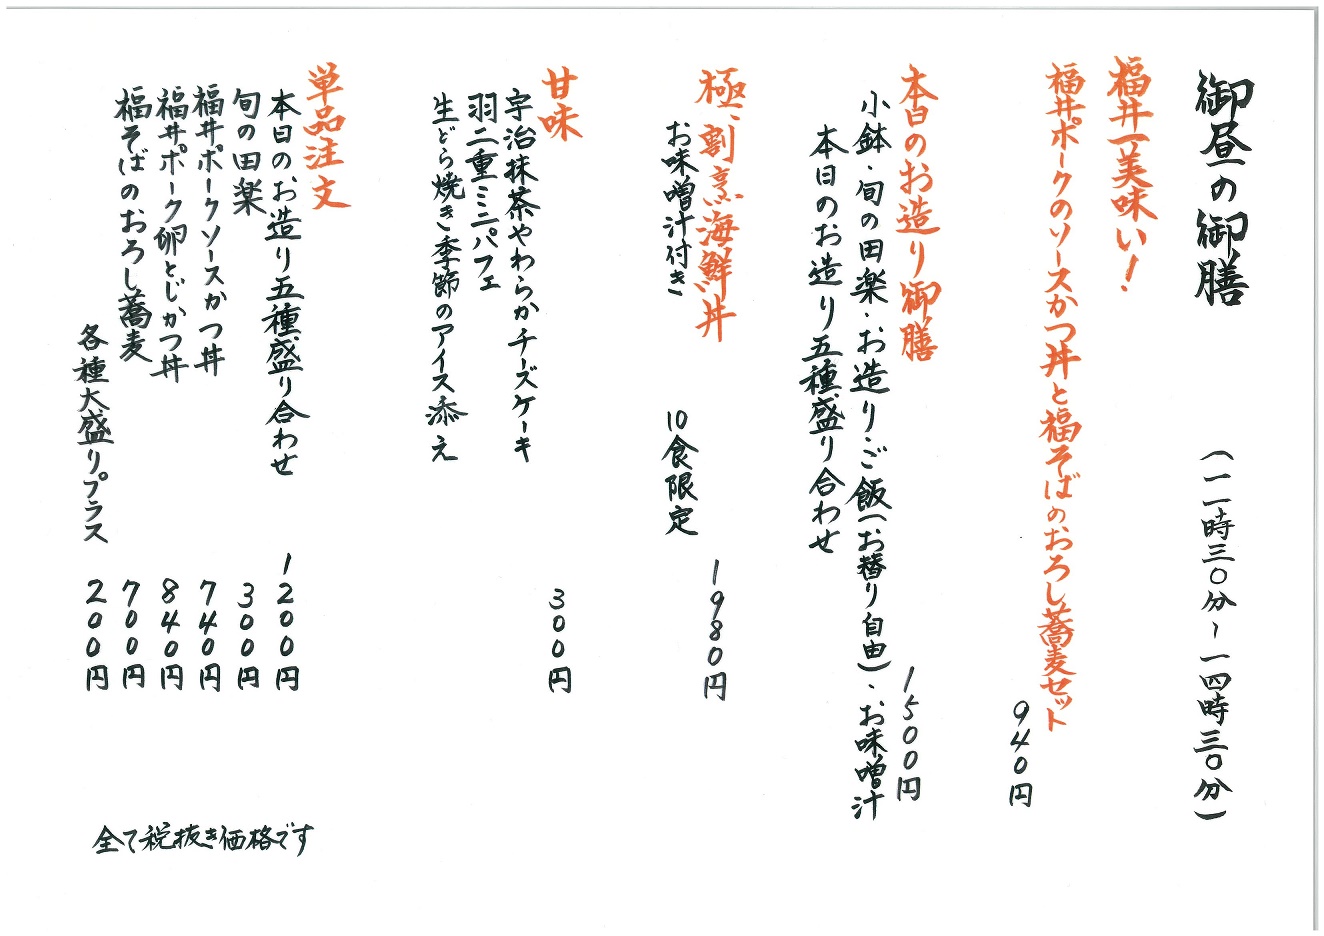 御昼の御膳 (一一時三〇分~一四時三〇分)
福井一美味い!
福井ポークのソースかつ丼と福そばのおろし蕎麦セット
940円
本日のお造り御膳 1500円
小鉢・旬の田楽・お造り・ご飯(お替り自由)・お味噌汁
本日のお造り五種盛り合わせ
極、割烹海鮮丼 1980円
お味噌汁付き 10食限定
甘味 300円
宇治抹茶やわらかチーズケーキ
羽二重ミニパフェ
生どら焼き季節のアイス添え
単品注文
本日のお造り五種盛り合わせ 1200円
旬の田楽 300円
福井ポークソースかつ丼 740円
福井ポーク卵とじかつ丼 840円
福そばのおろし蕎麦 700円
各種大盛りプラス 200円
全て税抜き価格です